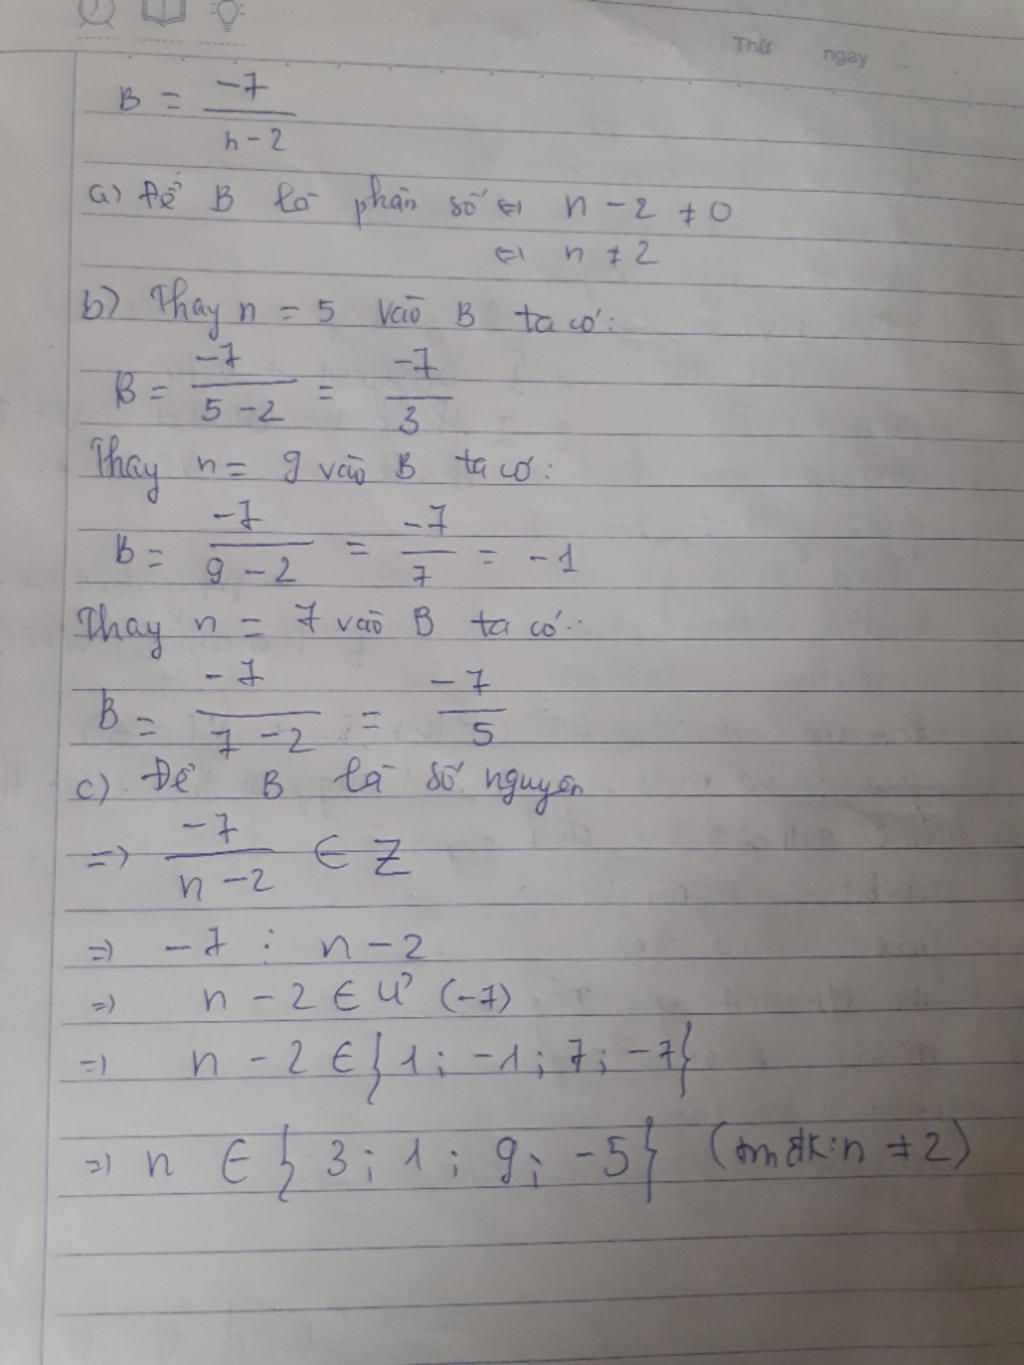 Thứ ngày
B = -7/(n-2)
a) Để B là phân số ⇔ n - 2 ≠ 0
⇔ n ≠ 2
b) Thay n = 5 vào B ta có:
B = -7/(5-2) = -7/3
Thay n = 9 vào B ta có:
B = -7/(9-2) = -7/7 = -1
Thay n = 7 vào B ta có:
B = -7/(7-2) = -7/5
c) Để B là số nguyên
=> -7/(n-2) ∈ Z
=> -7 ⋮ n-2
=> n - 2 ∈ Ư (-7)
=> n - 2 ∈ {1; -1; 7; -7}
=> n ∈ {3; 1; 9; -5} (tmđk: n ≠ 2)